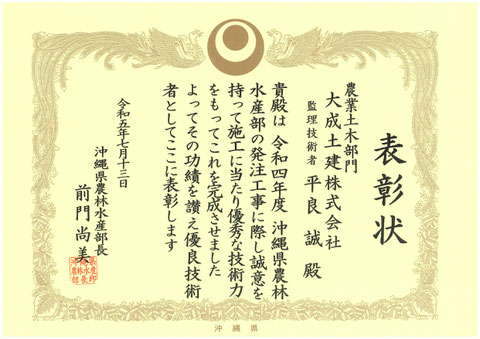 表彰状
農業土木部門
大成土建株式会社
監理技術者 平良 誠 殿
貴殿は 令和四年度 沖縄県農林
水産部の発注工事に際し誠意を
持って施工に当たり優秀な技術力
をもってこれを完成させました
よってその功績を讃え優良技術
者としてここに表彰します
令和五年七月十三日
沖縄県農林水産部長
前門 尚美
沖縄県